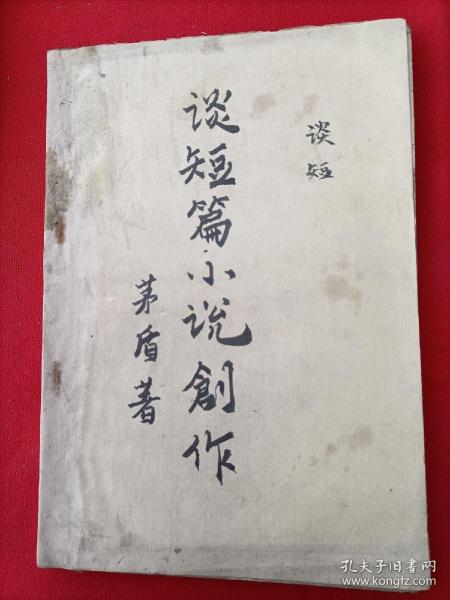 谈短
谈短篇小说創作
茅盾著
孔夫子旧书网
www.kongfz.com